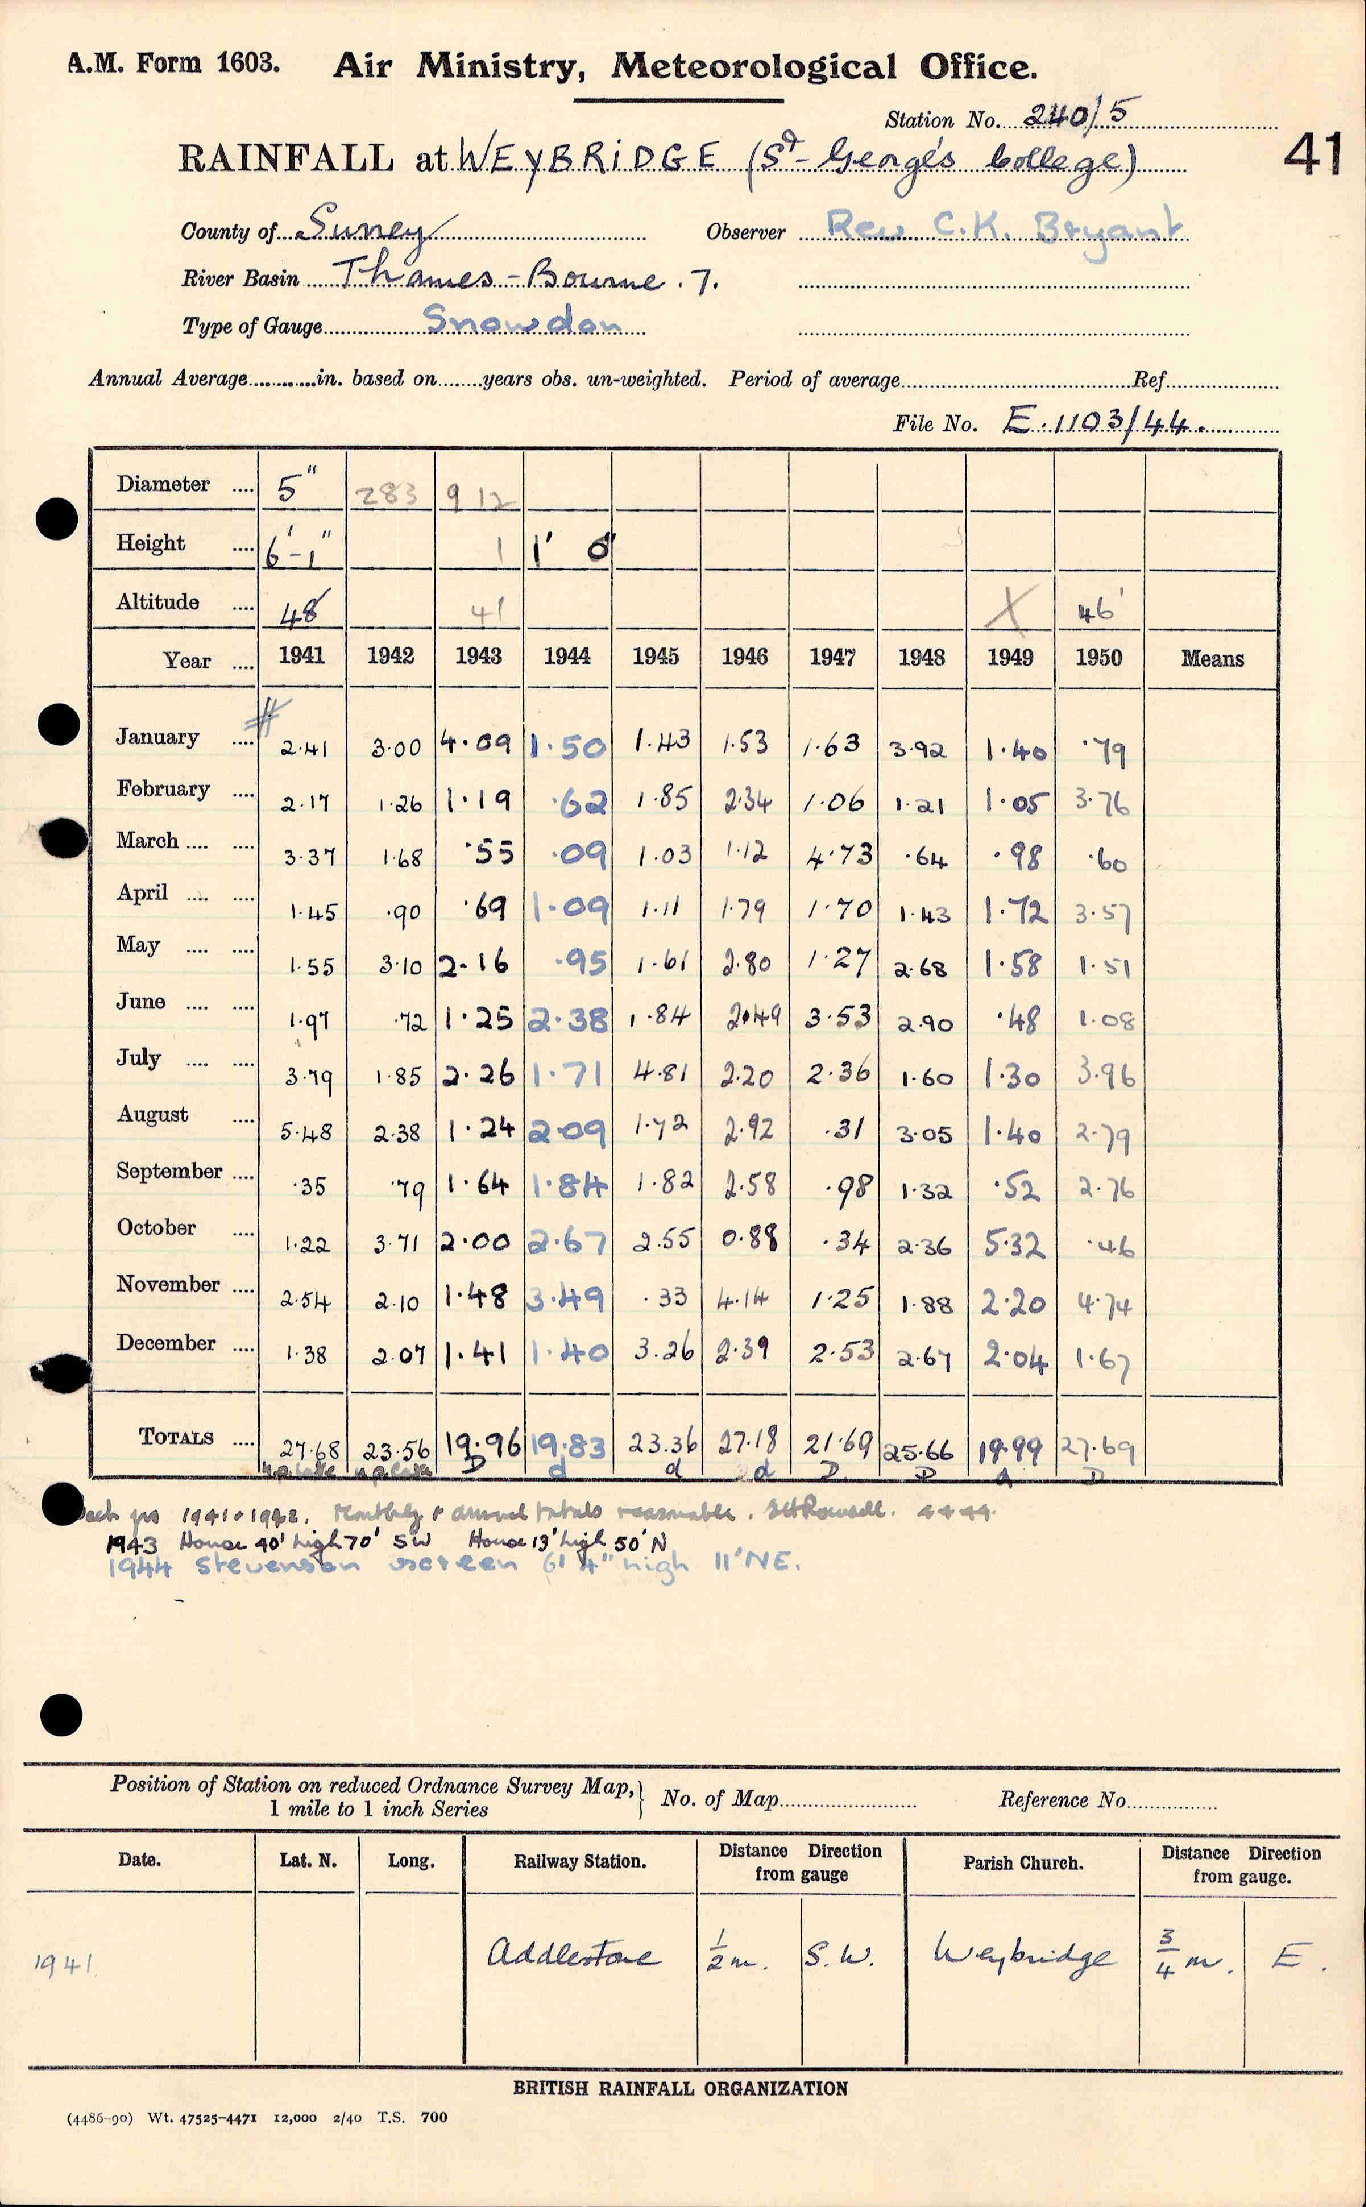 A.M. Form 1603. Air Ministry, Meteorological Office.
Station No. 240/5
41
RAINFALL at WEYBRIDGE (St. George's College)
County of Surrey Observer Rev C.K. Bryant
River Basin Thames - Bourne. 7.
Type of Gauge Snowdon
Annual Average in. based on years obs. un-weighted. Period of average Ref
File No. E.1103/44.
Diameter 5" 283 9 12
Height 6'-1" 1 1' 0"
Altitude 48' 41 X 46'
Year 1941 1942 1943 1944 1945 1946 1947 1948 1949 1950 Means
January 2.41 3.00 4.09 1.50 1.43 1.53 1.63 3.92 1.40 .79
February 2.17 1.26 1.19 .62 1.85 2.34 1.06 1.21 1.05 3.76
March 3.37 1.68 .55 .09 1.03 1.12 4.73 .64 .98 .60
April 1.45 .90 .69 1.09 1.11 1.79 1.70 1.43 1.72 3.57
May 1.55 3.10 2.16 .95 1.61 2.80 1.27 2.68 1.58 1.51
June 1.97 .72 1.25 2.38 1.84 2.49 3.53 2.90 .48 1.08
July 3.79 1.85 2.26 1.71 4.81 2.20 2.36 1.60 1.30 3.96
August 5.48 2.38 1.24 2.09 1.72 2.92 .31 3.05 1.40 2.79
September .35 .79 1.64 1.84 1.82 2.58 .98 1.32 .52 2.76
October 1.22 3.71 2.00 2.67 2.55 0.88 .34 2.36 5.32 .46
November 2.54 2.10 1.48 3.49 .33 4.14 1.25 1.88 2.20 4.74
December 1.38 2.07 1.41 1.40 3.26 2.39 2.53 2.67 2.04 1.67
TOTALS 27.68 23.56 19.96 19.83 23.36 27.18 21.69 25.66 19.99 27.69
D d d d D D a D
1941 + 1942. Monthly + annual totals reasonable. 4444.
1943 House 40' high 70' SW House 13' high 50' N
1944 Stevenson screen 6' 4" high 11' NE.
Position of Station on reduced Ordnance Survey Map, 1 mile to 1 inch Series No. of Map Reference No.
Date. Lat. N. Long. Railway Station. Distance Direction from gauge Parish Church. Distance Direction from gauge.
1941. Addlestone 1/2 m. S.W. Weybridge 3/4 m. E.
BRITISH RAINFALL ORGANIZATION
(4486-90) Wt. 47525-4471 12,000 2/40 T.S. 700